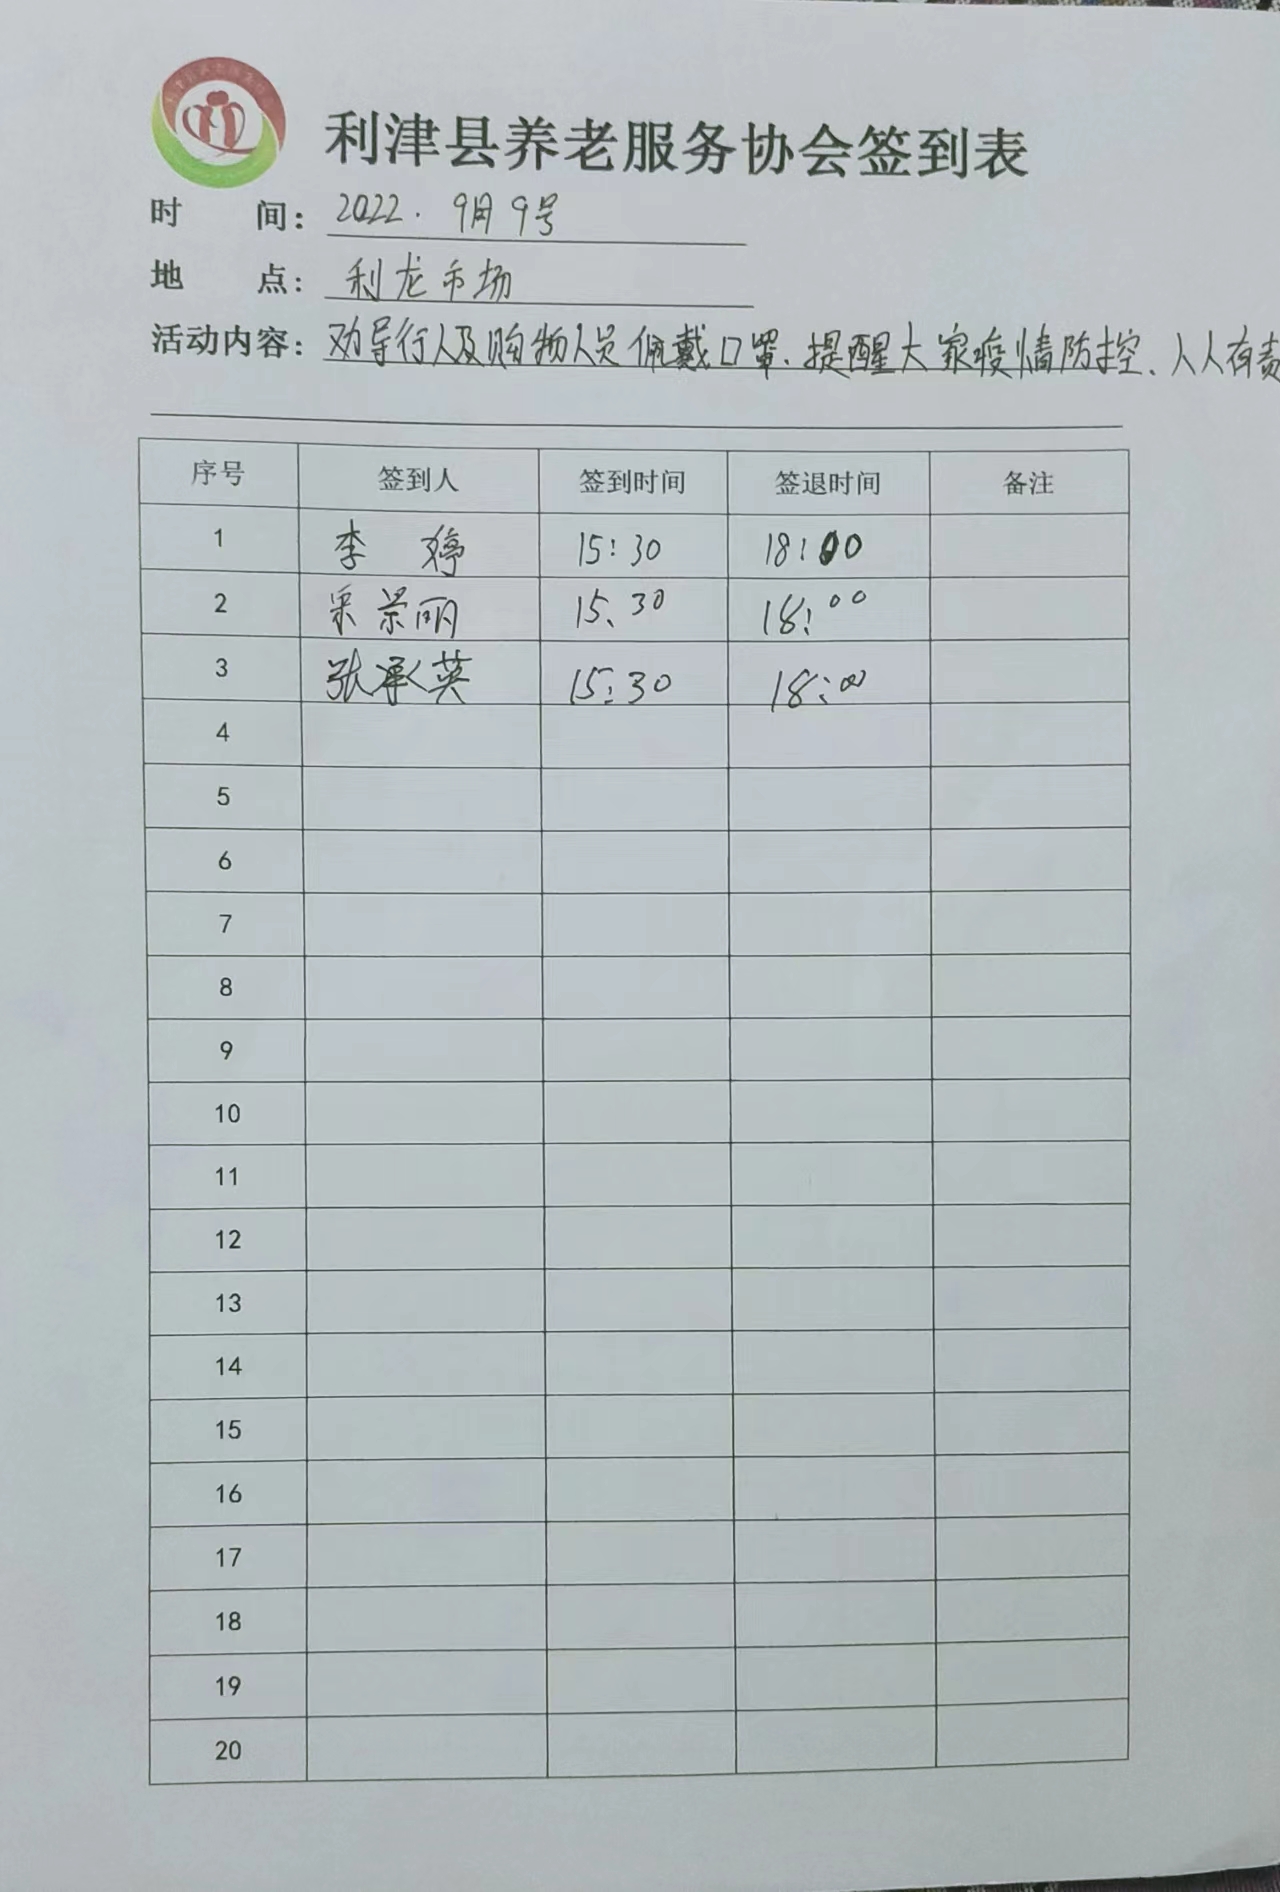 利津县养老服务协会签到表
时 间: 2022. 9月9号
地 点: 利龙市场
活动内容: 劝导行人及购物人员佩戴口罩、提醒大家疫情防控、人人有责
序号 签到人 签到时间 签退时间 备注
1 李婷 15:30 18:00
2 景丽 15:30 18:00
3 张承英 15:30 18:00
4
5
6
7
8
9
10
11
12
13
14
15
16
17
18
19
20